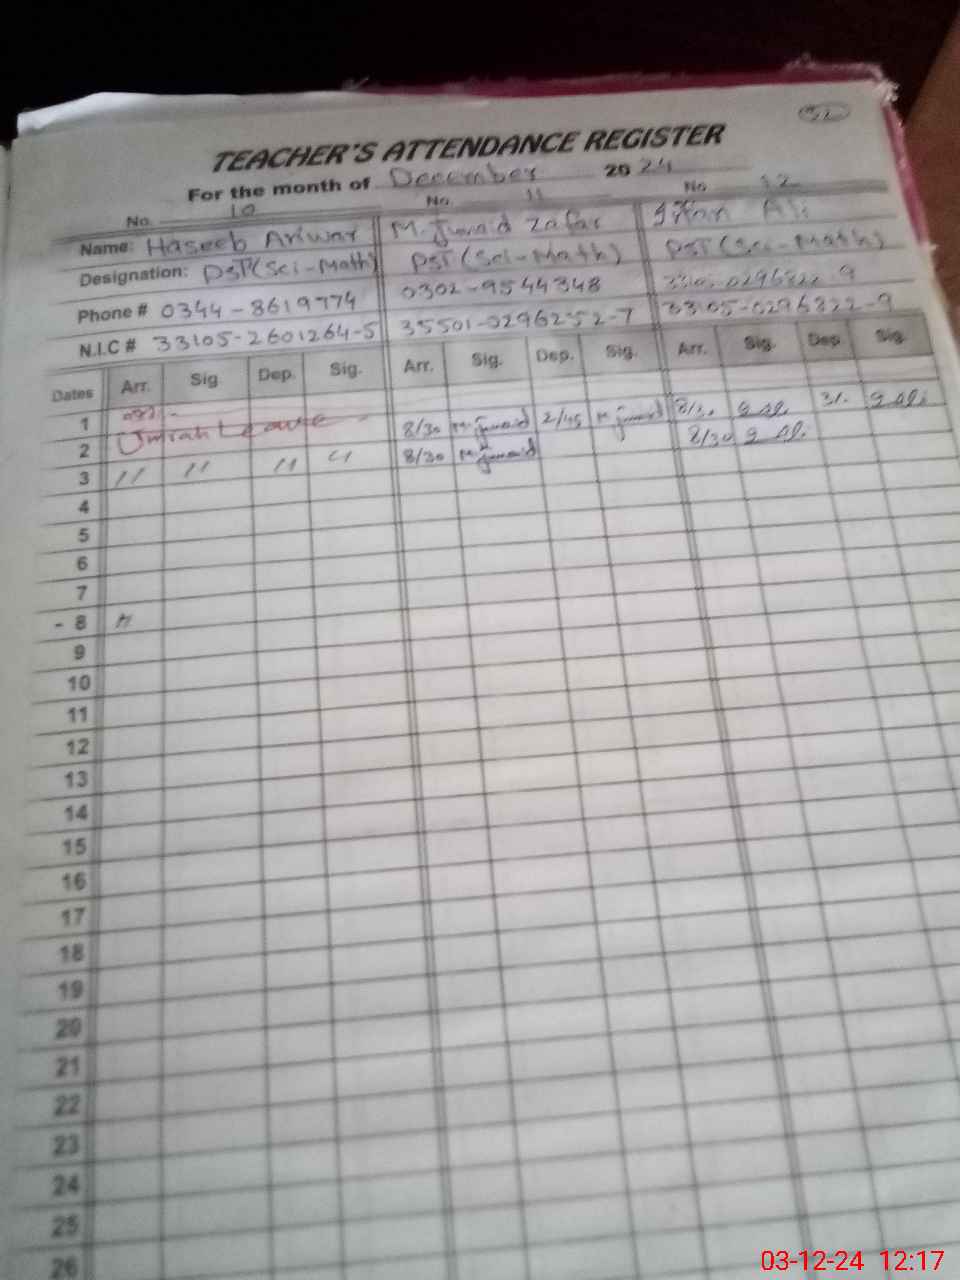 52
TEACHER'S ATTENDANCE REGISTER
For the month of December 2024
No. 10 No. 11 No 12
Name: Haseeb Anwar M. Junaid Zafar Irfan Ali
Designation: PST(Sci-Math) PST(Sci-Math) PST(Sci-Math)
Phone # 0344-8619774 0302-9544348
N.I.C # 33105-2601264-5 35501-0296252-7 33105-0296822-9
Dates Arr. Sig Dep. Sig. Arr. Sig. Dep. Sig. Arr. Sig. Dep. Sig.
1 8/30 M. Junaid 2/45 M. Junaid
2 Umrah Leave 8/30 M. Junaid 8/30
3 〃 〃 〃 〃
4
5
6
7
- 8 〃
9
10
11
12
13
14
15
16
17
18
19
20
21
22
23
24
25
26
03-12-24 12:17